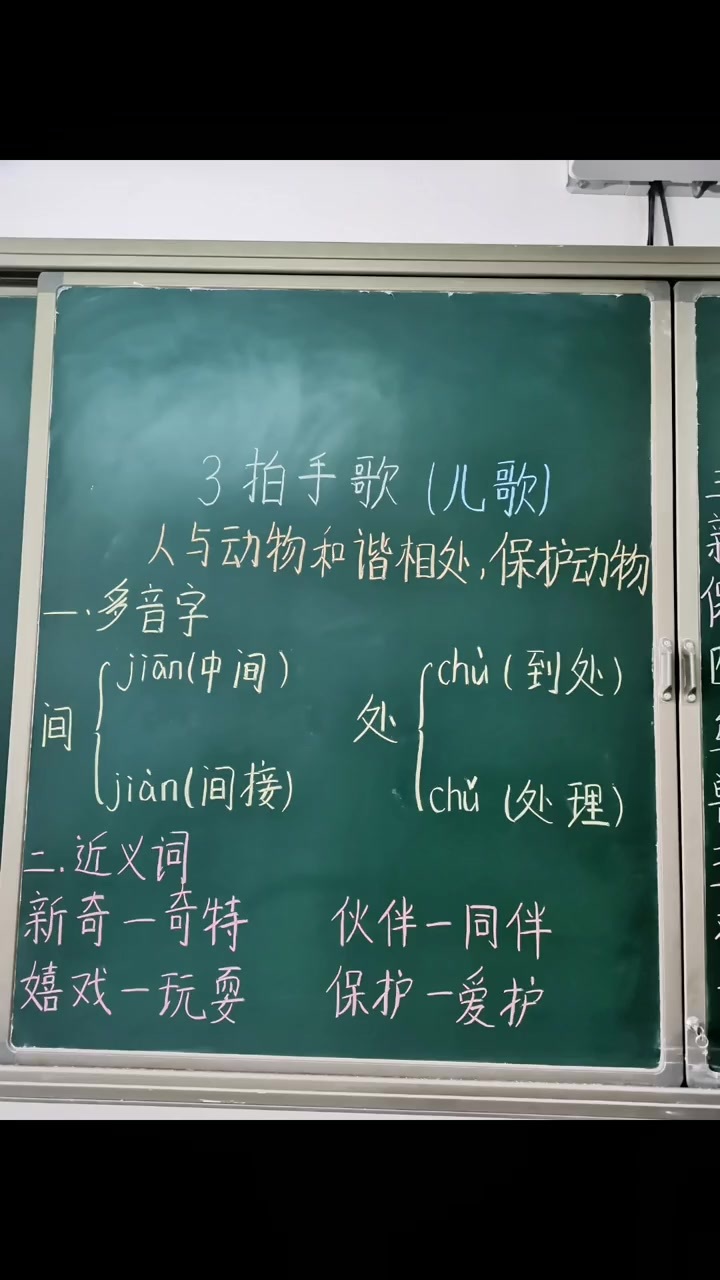 3 拍手歌 (儿歌)
人与动物和谐相处,保护动物
一.多音字
间 { jiān(中间) jiàn(间接)
处 { chù (到处) chǔ (处理)
二.近义词
新奇—奇特 伙伴—同伴
嬉戏—玩耍 保护—爱护